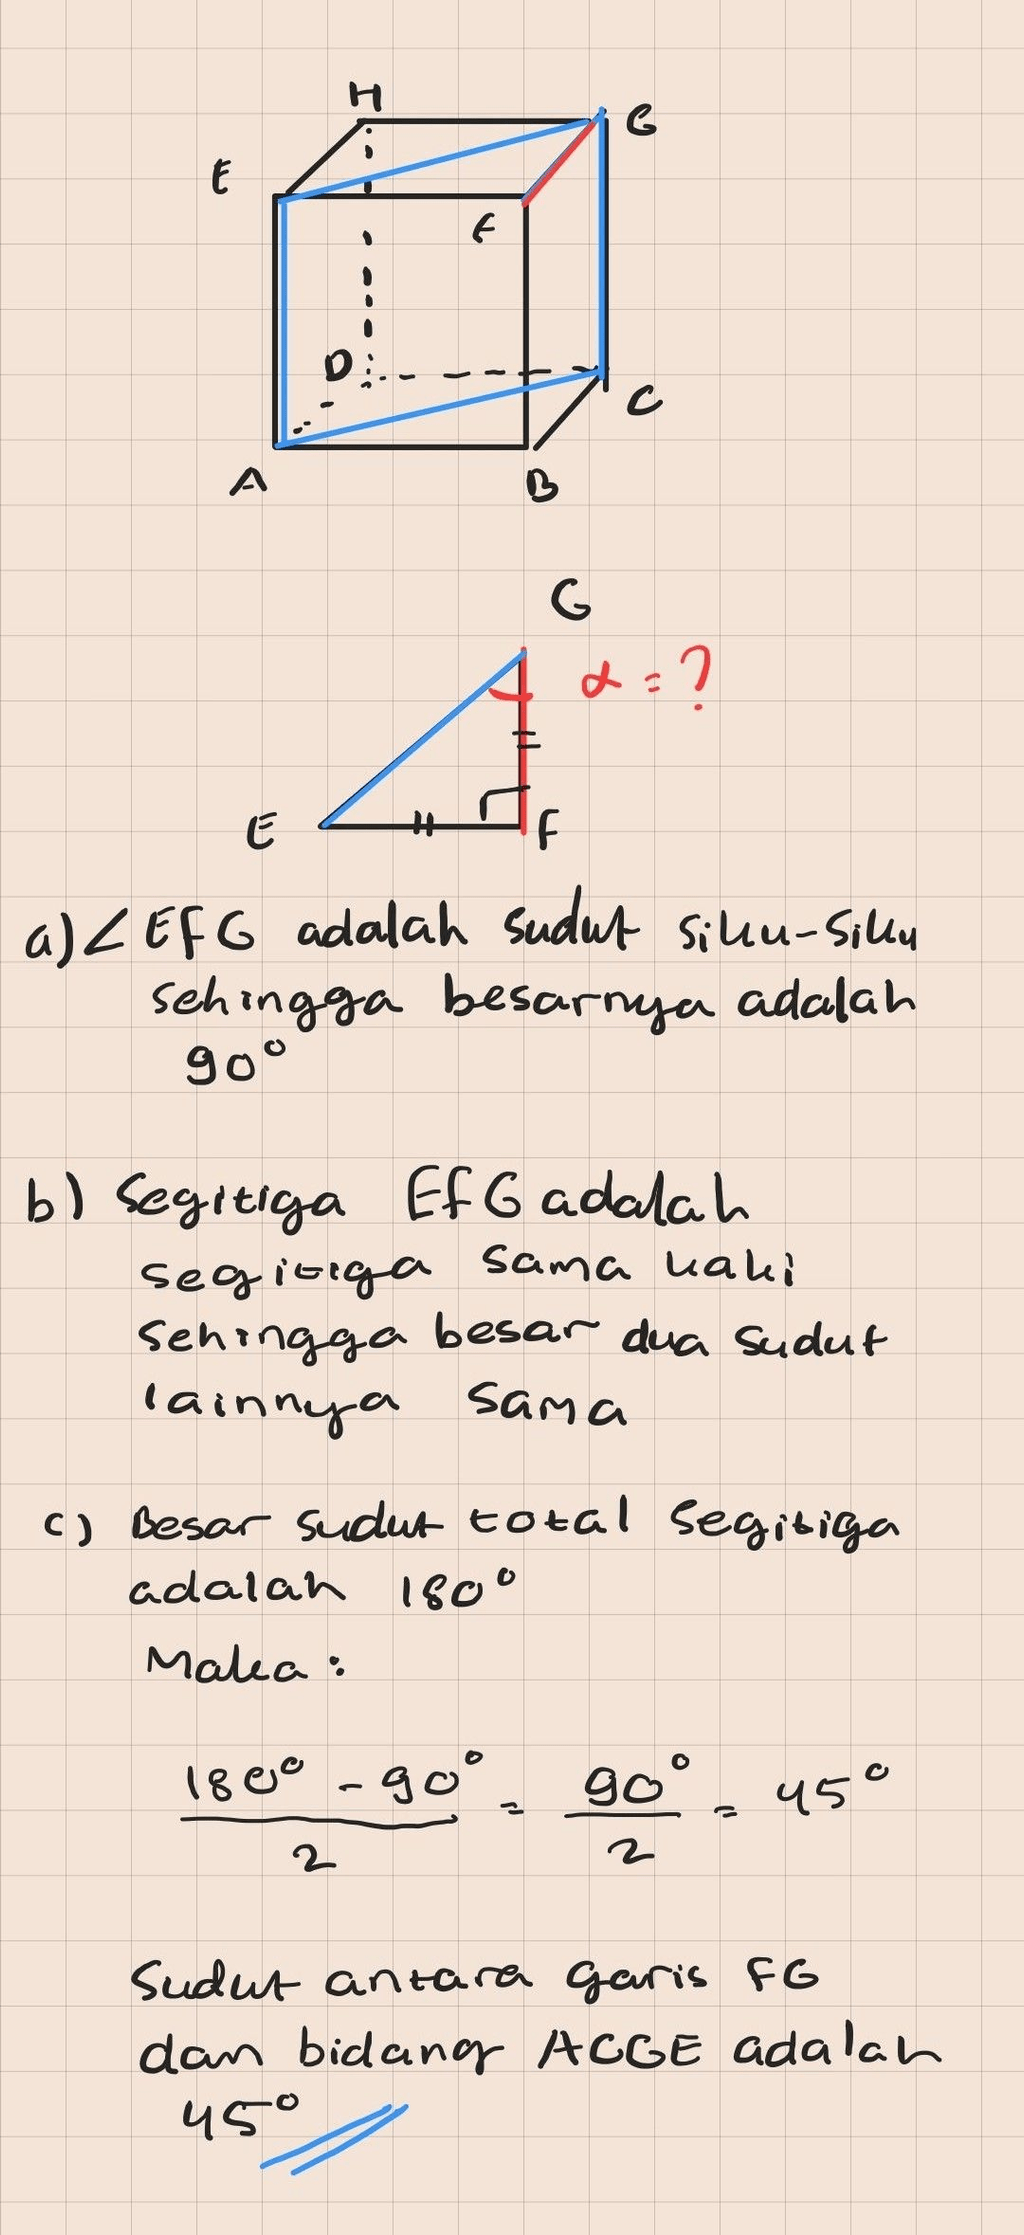 H
G
E
F
D
C
A
B
G
α = ?
E
F
a) ∠EFG adalah sudut siku-siku
sehingga besarnya adalah
90°
b) Segitiga EFG adalah
segitiga sama kaki
sehingga besar dua sudut
lainnya sama
c) Besar sudut total segitiga
adalah 180°
Maka :
(180° - 90°)/2 = 90°/2 = 45°
Sudut antara garis FG
dan bidang ACGE adalah
45°